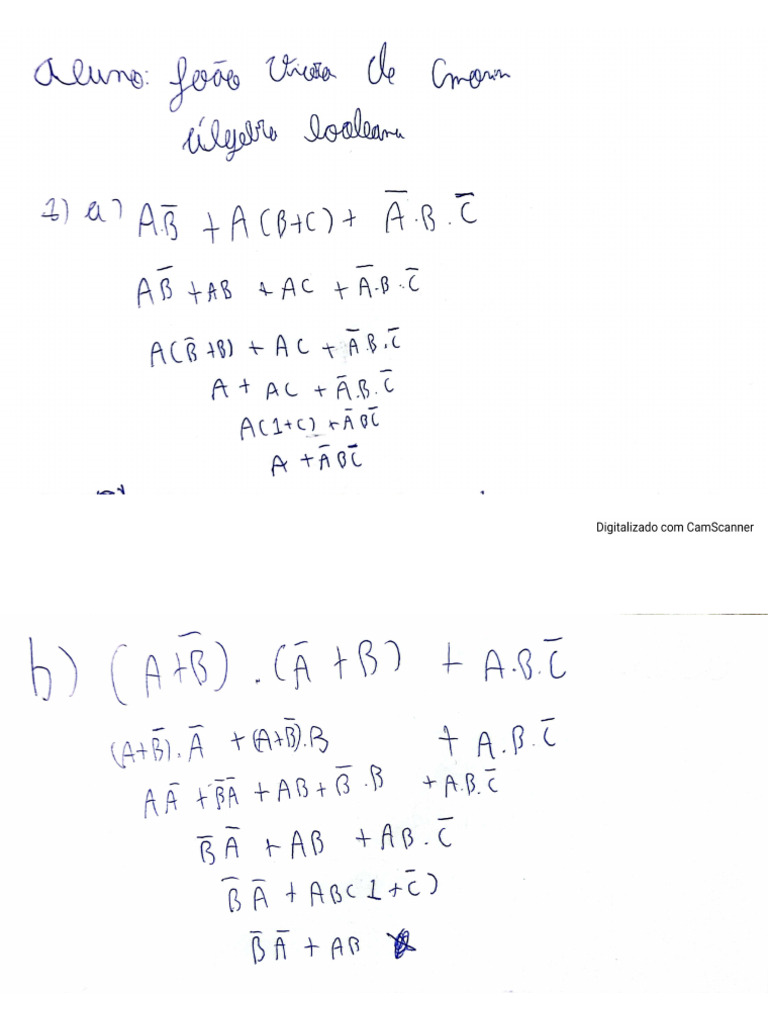 Aluno: João de
álgebra booleana
1) a) AB̅ + A(B+C) + A̅.B.C̅
AB̅ + AB + AC + A̅.B.C̅
A(B̅+B) + AC + A̅.B.C̅
A + AC + A̅.B.C̅
A(1+C) + A̅BC̅
A + A̅BC̅
Digitalizado com CamScanner
b) (A+B̅).(A̅+B) + A.B.C̅
(A+B̅).A̅ + (A+B̅).B + A.B.C̅
AA̅ + B̅A̅ + AB + B̅.B + A.B.C̅
B̅A̅ + AB + AB.C̅
B̅A̅ + AB(1+C̅)
B̅A̅ + AB